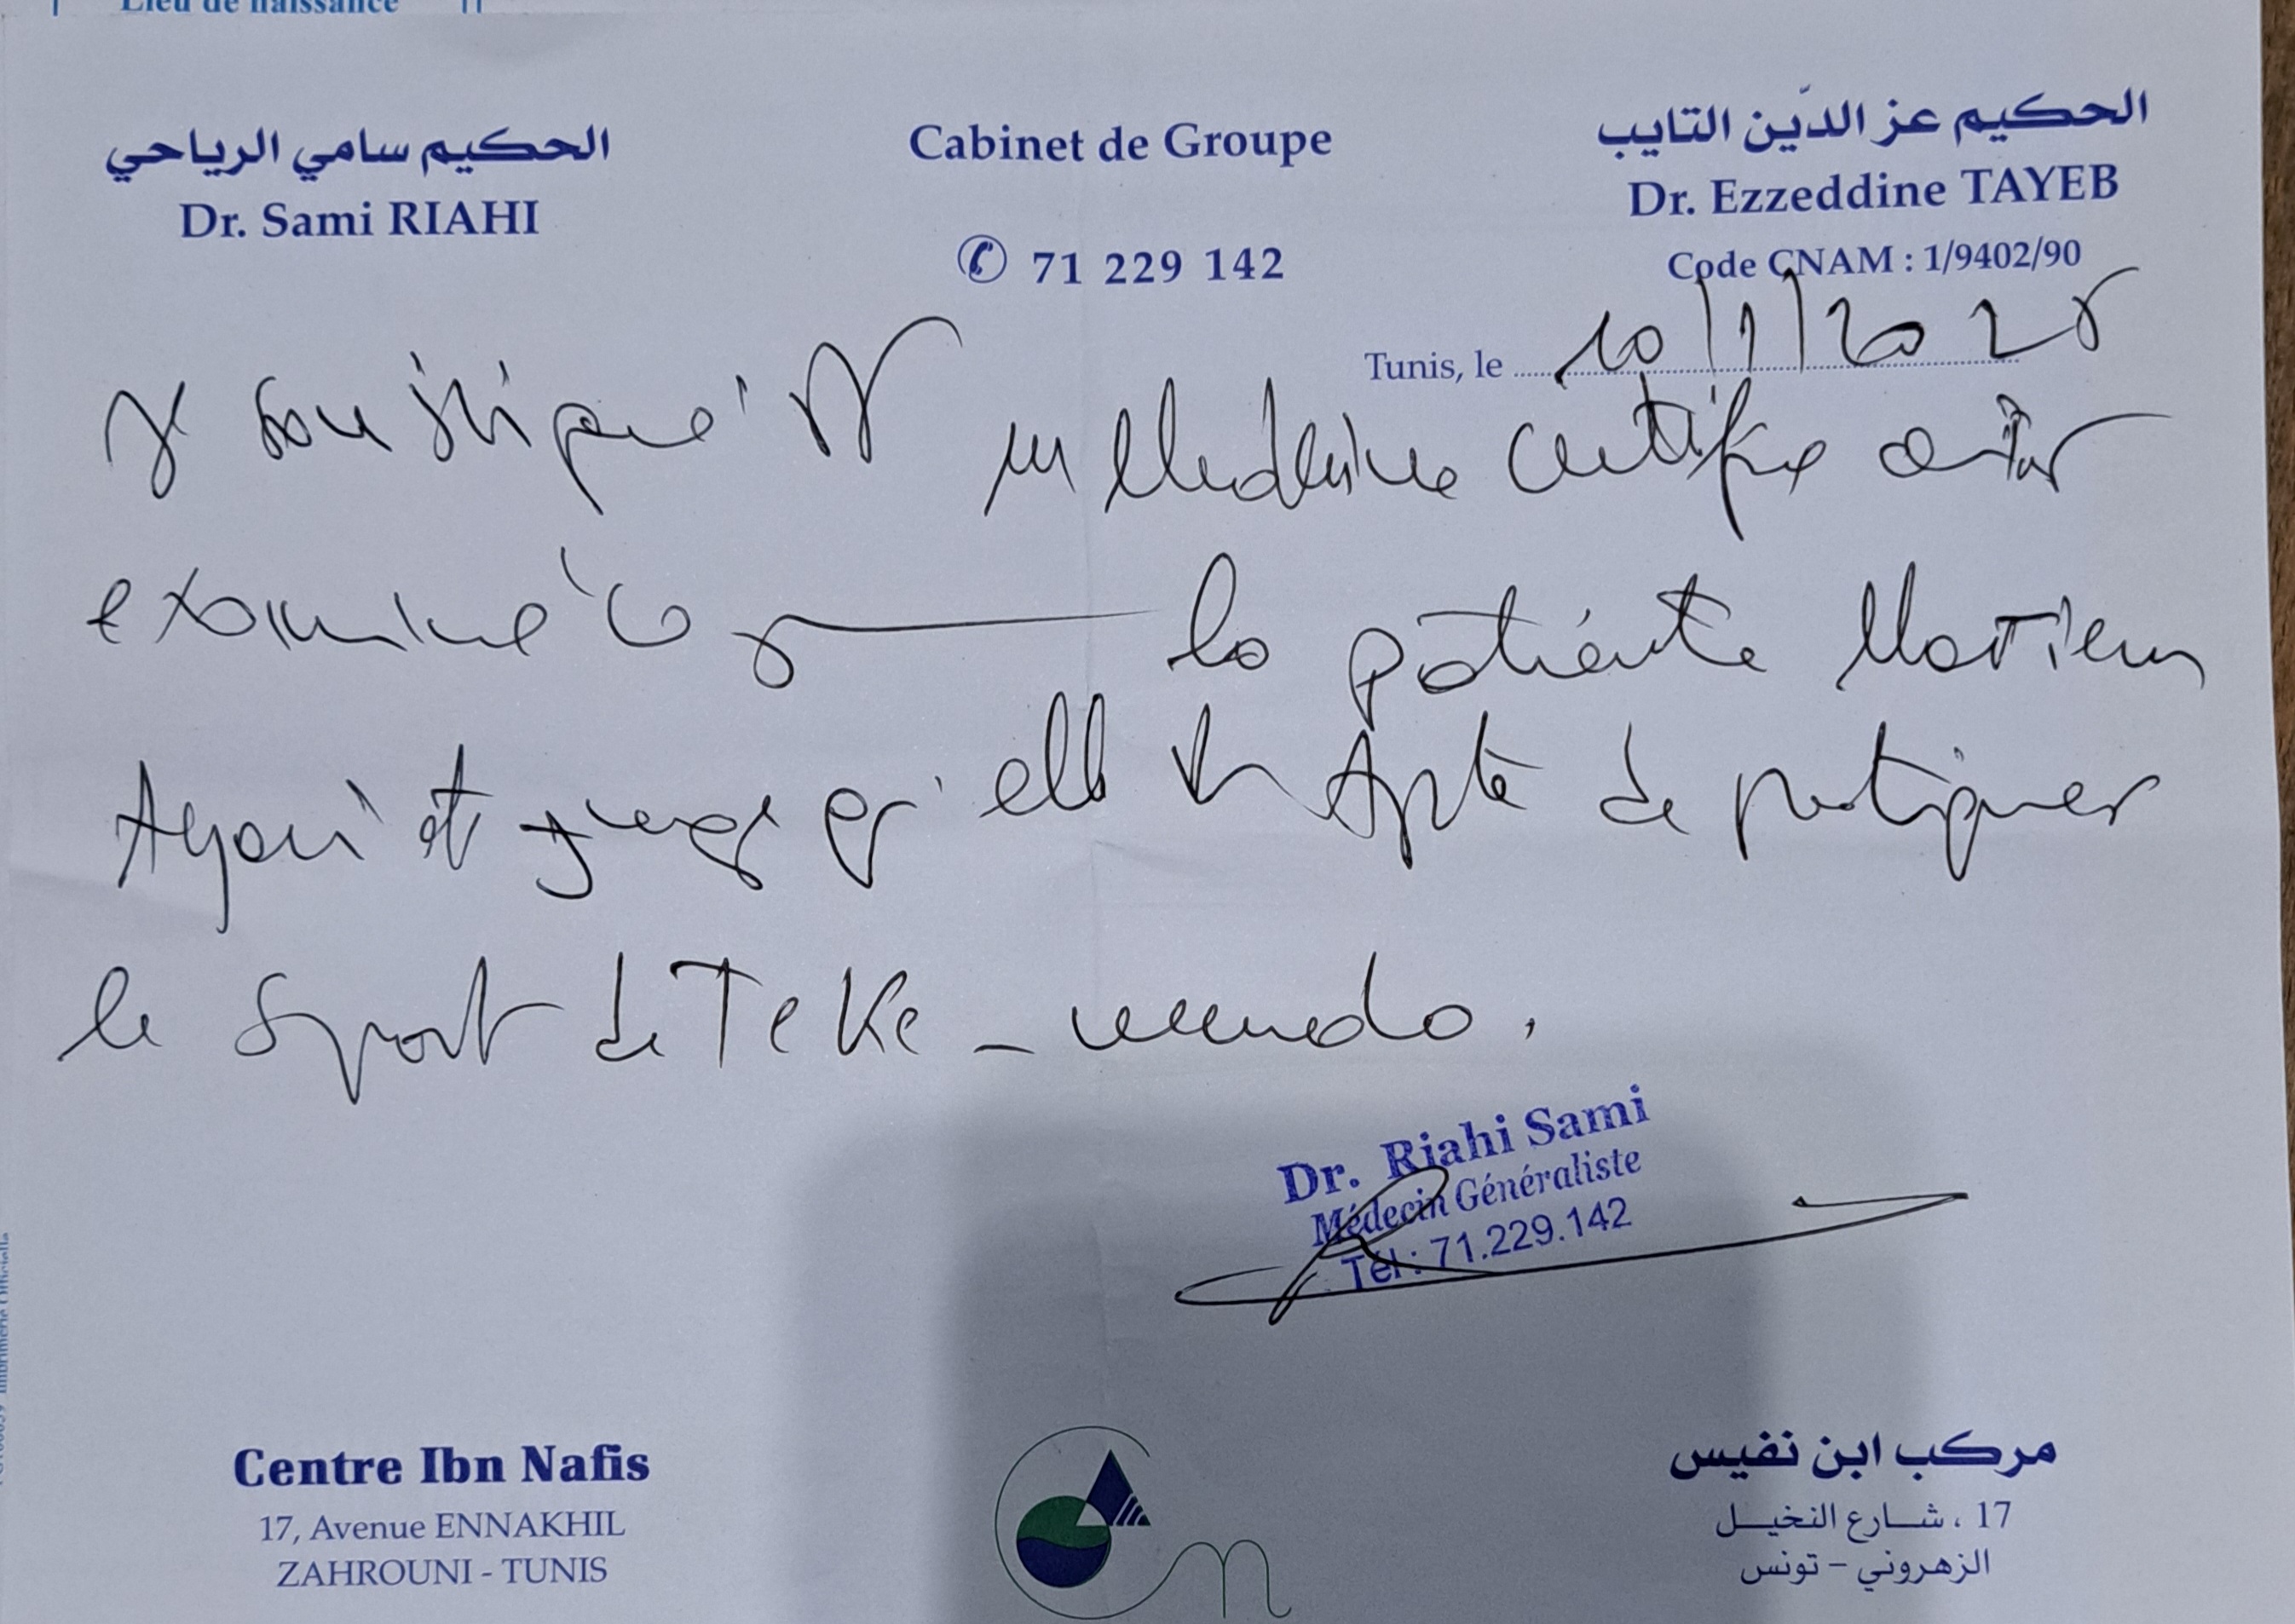 Lieu de naissance
الحكيم سامي الرياحي
Dr. Sami RIAHI
Cabinet de Groupe
✆ 71 229 142
الحكيم عز الدّين التايب
Dr. Ezzeddine TAYEB
Code CNAM : 1/9402/90
Tunis, le 10/1/2025
Je soussigné Dr en Medecine certifie avoir
examiné ce jour la patiente Mariem
Ayari et juge qu'elle est Apte de pratiquer
le sport de TeKe-wendo.
Dr. Riahi Sami
Médecin Généraliste
Tél : 71.229.142
Centre Ibn Nafis
17, Avenue ENNAKHIL
ZAHROUNI - TUNIS
مركب ابن نفيس
17 ، شارع النخيل
الزهروني - تونس